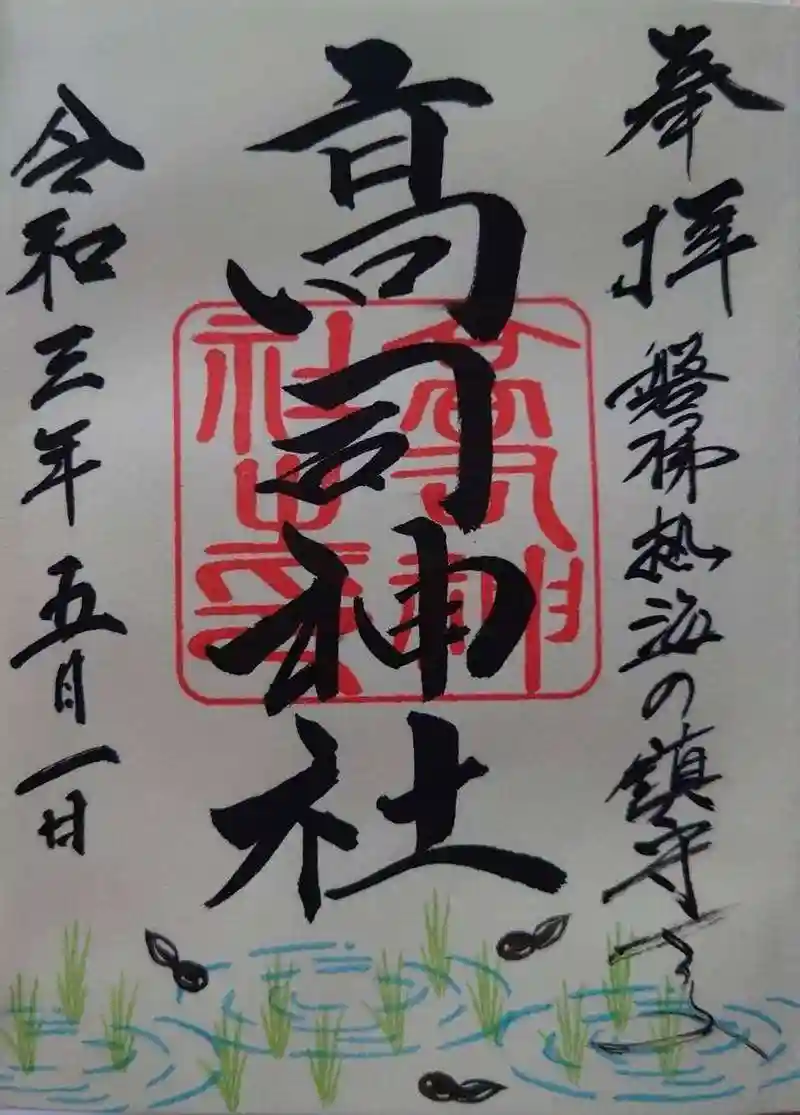 奉拝 磐梯熱海の鎮守
高司神社
令和三年五月一日
高司神
社之印